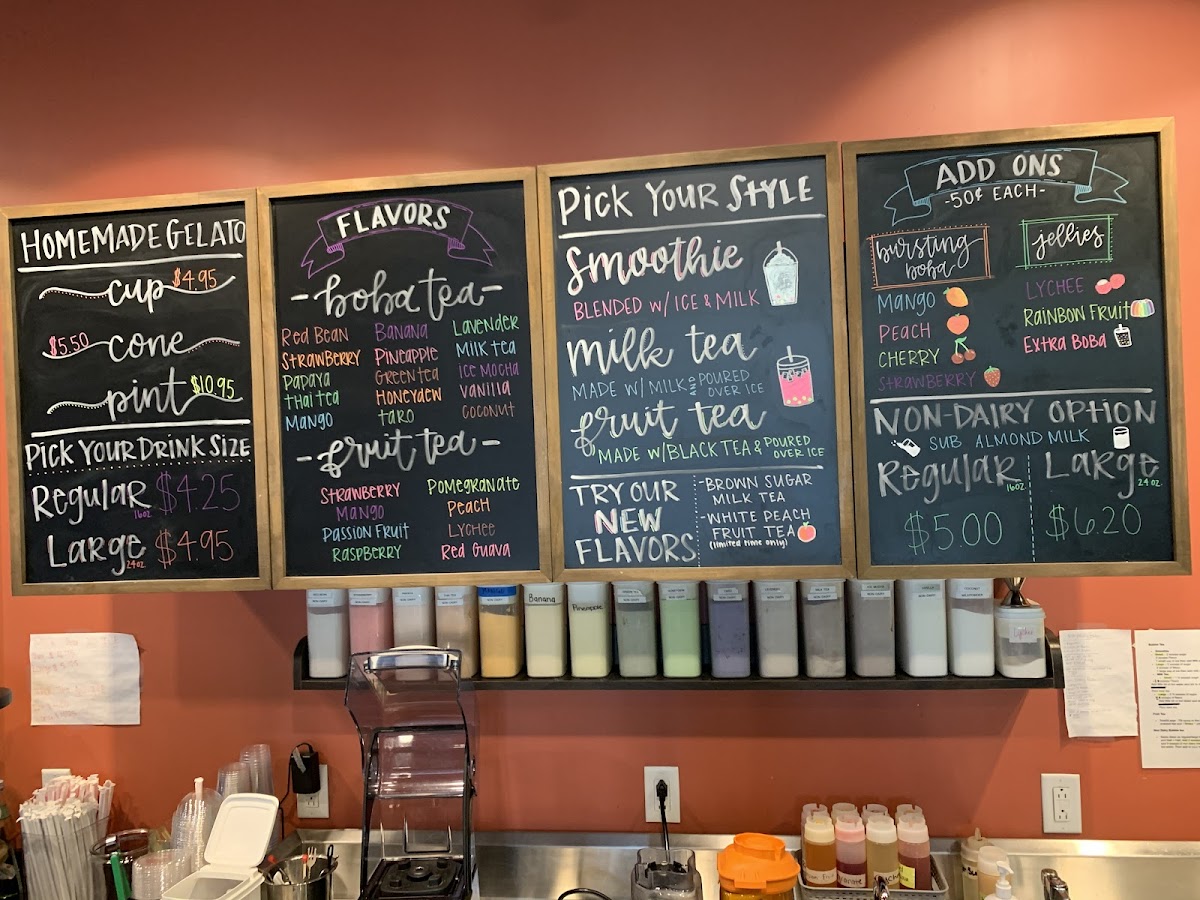 HOMEMADE GELATO
cup $4.95
$5.50 cone
pint $10.95
PICK YOUR DRINK SIZE
Regular 16oz. $4.25
Large 24oz. $4.95
FLAVORS
-boba tea-
RED BEAN
STRAWBERRY
PAPAYA
THAI TEA
MANGO
BANANA
PINEAPPLE
GREEN TEA
HONEYDEW
TARO
LAVENDER
MILK TEA
ICE MOCHA
VANILLA
COCONUT
-fruit tea-
STRAWBERRY
MANGO
PASSION FRUIT
RASPBERRY
POMEGRANATE
PEACH
LYCHEE
RED GUAVA
PICK YOUR STYLE
smoothie
BLENDED W/ ICE & MILK
milk tea
MADE W/ MILK AND POURED OVER ICE
fruit tea
MADE W/BLACK TEA & POURED OVER ICE
TRY OUR
NEW
FLAVORS
-BROWN SUGAR
MILK TEA
-WHITE PEACH
FRUIT TEA
(limited time only)
ADD ONS
-50¢ EACH-
bursting
boba
MANGO
PEACH
CHERRY
STRAWBERRY
jellies
LYCHEE
RAINBOW FRUIT
EXTRA BOBA
NON-DAIRY OPTION
SUB ALMOND MILK
Regular 16oz.
$5.00
Large 24oz.
$6.20
Banana
Pineapple
Lychee